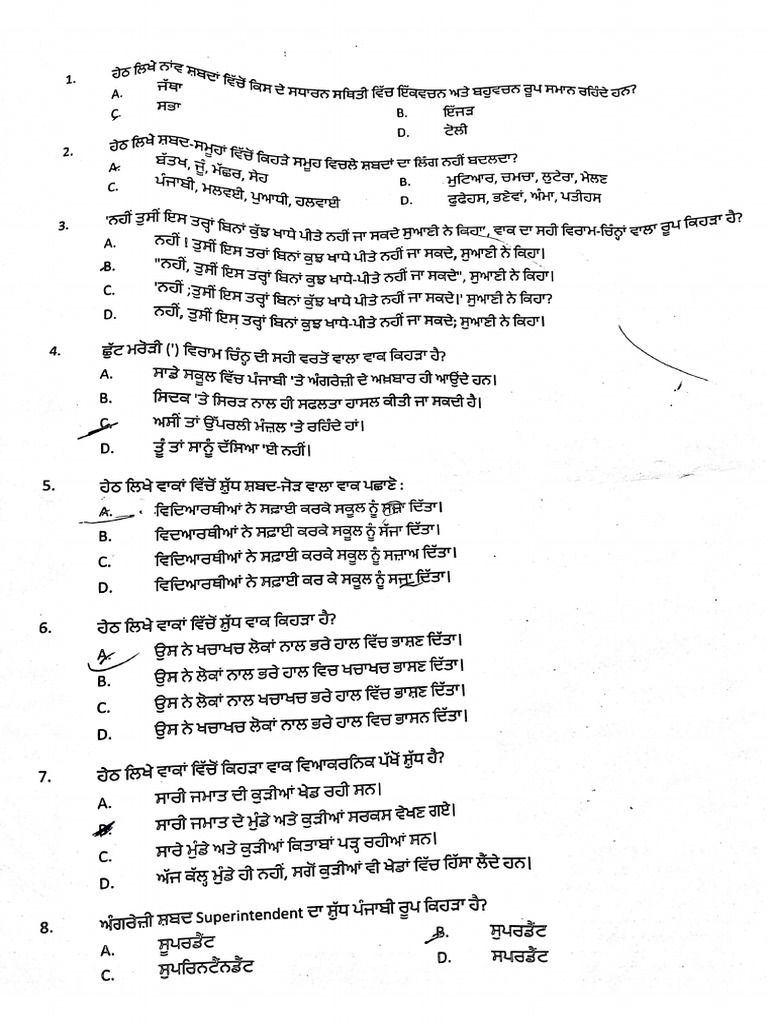 1. ਹੇਠ ਲਿਖੇ ਨਾਂਵ ਸ਼ਬਦਾਂ ਵਿੱਚੋਂ ਕਿਸ ਦੇ ਸਧਾਰਨ ਸਥਿਤੀ ਵਿੱਚ ਇੱਕਵਚਨ ਅਤੇ ਬਹੁਵਚਨ ਰੂਪ ਸਮਾਨ ਰਹਿੰਦੇ ਹਨ?
A. ਜੱਥਾ B. ਇੱਜੜ
C. ਸਭਾ D. ਟੋਲੀ
2. ਹੇਠ ਲਿਖੇ ਸ਼ਬਦ-ਸਮੂਹਾਂ ਵਿੱਚੋਂ ਕਿਹੜੇ ਸਮੂਹ ਵਿਚਲੇ ਸ਼ਬਦਾਂ ਦਾ ਲਿੰਗ ਨਹੀਂ ਬਦਲਦਾ?
A. ਬੱਤਖ, ਜੂੰ, ਮੱਛਰ, ਸੇਹ B. ਮੁਟਿਆਰ, ਚਮਚਾ, ਲੁਟੇਰਾ, ਮੇਲਣ
C. ਪੰਜਾਬੀ, ਮਲਵਈ, ਪੁਆਧੀ, ਹਲਵਾਈ D. ਫੁਫੇਹਸ, ਭਣੇਵਾਂ, ਅੰਮਾ, ਪਤੀਹਸ
3. 'ਨਹੀਂ ਤੁਸੀਂ ਇਸ ਤਰ੍ਹਾਂ ਬਿਨਾਂ ਕੁੱਝ ਖਾਧੇ ਪੀਤੇ ਨਹੀਂ ਜਾ ਸਕਦੇ ਸੁਆਣੀ ਨੇ ਕਿਹਾ', ਵਾਕ ਦਾ ਸਹੀ ਵਿਰਾਮ-ਚਿੰਨ੍ਹਾਂ ਵਾਲਾ ਰੂਪ ਕਿਹੜਾ ਹੈ?
A. ਨਹੀਂ ! ਤੁਸੀਂ ਇਸ ਤਰ੍ਹਾਂ ਬਿਨਾਂ ਕੁਝ ਖਾਧੇ ਪੀਤੇ ਨਹੀਂ ਜਾ ਸਕਦੇ, ਸੁਆਣੀ ਨੇ ਕਿਹਾ।
B. "ਨਹੀਂ, ਤੁਸੀਂ ਇਸ ਤਰ੍ਹਾਂ ਬਿਨਾਂ ਕੁਝ ਖਾਧੇ-ਪੀਤੇ ਨਹੀਂ ਜਾ ਸਕਦੇ", ਸੁਆਣੀ ਨੇ ਕਿਹਾ।
C. 'ਨਹੀਂ ;ਤੁਸੀਂ ਇਸ ਤਰ੍ਹਾਂ ਬਿਨਾਂ ਕੁੱਝ ਖਾਧੇ ਪੀਤੇ ਨਹੀਂ ਜਾ ਸਕਦੇ।' ਸੁਆਣੀ ਨੇ ਕਿਹਾ?
D. ਨਹੀਂ, ਤੁਸੀਂ ਇਸ ਤਰ੍ਹਾਂ ਬਿਨਾਂ ਕੁਝ ਖਾਧੇ-ਪੀਤੇ ਨਹੀਂ ਜਾ ਸਕਦੇ; ਸੁਆਣੀ ਨੇ ਕਿਹਾ।
4. ਛੁੱਟ ਮਰੋੜੀ (') ਵਿਰਾਮ ਚਿੰਨ੍ਹ ਦੀ ਸਹੀ ਵਰਤੋਂ ਵਾਲਾ ਵਾਕ ਕਿਹੜਾ ਹੈ?
A. ਸਾਡੇ ਸਕੂਲ ਵਿੱਚ ਪੰਜਾਬੀ 'ਤੇ ਅੰਗਰੇਜ਼ੀ ਦੇ ਅਖ਼ਬਾਰ ਹੀ ਆਉਂਦੇ ਹਨ।
B. ਸਿਦਕ 'ਤੇ ਸਿਰੜ ਨਾਲ ਹੀ ਸਫਲਤਾ ਹਾਸਲ ਕੀਤੀ ਜਾ ਸਕਦੀ ਹੈ।
C. ਅਸੀਂ ਤਾਂ ਉੱਪਰਲੀ ਮੰਜ਼ਲ 'ਤੇ ਰਹਿੰਦੇ ਹਾਂ।
D. ਤੂੰ ਤਾਂ ਸਾਨੂੰ ਦੱਸਿਆ 'ਈ ਨਹੀਂ।
5. ਹੇਠ ਲਿਖੇ ਵਾਕਾਂ ਵਿੱਚੋਂ ਸ਼ੁੱਧ ਸ਼ਬਦ-ਜੋੜ ਵਾਲਾ ਵਾਕ ਪਛਾਣੋ :
A. ਵਿਦਿਆਰਥੀਆਂ ਨੇ ਸਫ਼ਾਈ ਕਰਕੇ ਸਕੂਲ ਨੂੰ ਸਜਾ ਦਿੱਤਾ।
B. ਵਿਦਆਰਥੀਆਂ ਨੇ ਸਫ਼ਾਈ ਕਰਕੇ ਸਕੂਲ ਨੂੰ ਸੱਜਾ ਦਿੱਤਾ।
C. ਵਿਦਿਆਰਥੀਆਂ ਨੇ ਸਫ਼ਾਈ ਕਰਕੇ ਸਕੂਲ ਨੂੰ ਸਜ਼ਾਅ ਦਿੱਤਾ।
D. ਵਿਦਿਆਰਥੀਆਂ ਨੇ ਸਫ਼ਾਈ ਕਰ ਕੇ ਸਕੂਲ ਨੂੰ ਸਜਾ ਦਿੱਤਾ।
6. ਹੇਠ ਲਿਖੇ ਵਾਕਾਂ ਵਿੱਚੋਂ ਸ਼ੁੱਧ ਵਾਕ ਕਿਹੜਾ ਹੈ?
A. ਉਸ ਨੇ ਖਚਾਖਚ ਲੋਕਾਂ ਨਾਲ ਭਰੇ ਹਾਲ ਵਿੱਚ ਭਾਸ਼ਣ ਦਿੱਤਾ।
B. ਉਸ ਨੇ ਲੋਕਾਂ ਨਾਲ ਭਰੇ ਹਾਲ ਵਿਚ ਖਚਾਖਚ ਭਾਸਣ ਦਿੱਤਾ।
C. ਉਸ ਨੇ ਲੋਕਾਂ ਨਾਲ ਖਚਾਖਚ ਭਰੇ ਹਾਲ ਵਿੱਚ ਭਾਸ਼ਣ ਦਿੱਤਾ।
D. ਉਸ ਨੇ ਖਚਾਖਚ ਲੋਕਾਂ ਨਾਲ ਭਰੇ ਹਾਲ ਵਿਚ ਭਾਸਨ ਦਿੱਤਾ।
7. ਹੇਠ ਲਿਖੇ ਵਾਕਾਂ ਵਿੱਚੋਂ ਕਿਹੜਾ ਵਾਕ ਵਿਆਕਰਨਿਕ ਪੱਖੋਂ ਸ਼ੁੱਧ ਹੈ?
A. ਸਾਰੀ ਜਮਾਤ ਦੀ ਕੁੜੀਆਂ ਖੇਡ ਰਹੀ ਸਨ।
B. ਸਾਰੀ ਜਮਾਤ ਦੇ ਮੁੰਡੇ ਅਤੇ ਕੁੜੀਆਂ ਸਰਕਸ ਵੇਖਣ ਗਏ।
C. ਸਾਰੇ ਮੁੰਡੇ ਅਤੇ ਕੁੜੀਆਂ ਕਿਤਾਬਾਂ ਪੜ੍ਹ ਰਹੀਆਂ ਸਨ।
D. ਅੱਜ ਕੱਲ੍ਹ ਮੁੰਡੇ ਹੀ ਨਹੀਂ, ਸਗੋਂ ਕੁੜੀਆਂ ਵੀ ਖੇਡਾਂ ਵਿੱਚ ਹਿੱਸਾ ਲੈਂਦੇ ਹਨ।
8. ਅੰਗਰੇਜ਼ੀ ਸ਼ਬਦ Superintendent ਦਾ ਸ਼ੁੱਧ ਪੰਜਾਬੀ ਰੂਪ ਕਿਹੜਾ ਹੈ?
A. ਸੂਪਰਡੈਂਟ B. ਸੁਪਰਡੈਂਟ
C. ਸੁਪਰਿਨਟੈਂਨਡੈਂਟ D. ਸਪਰਡੈਂਟ